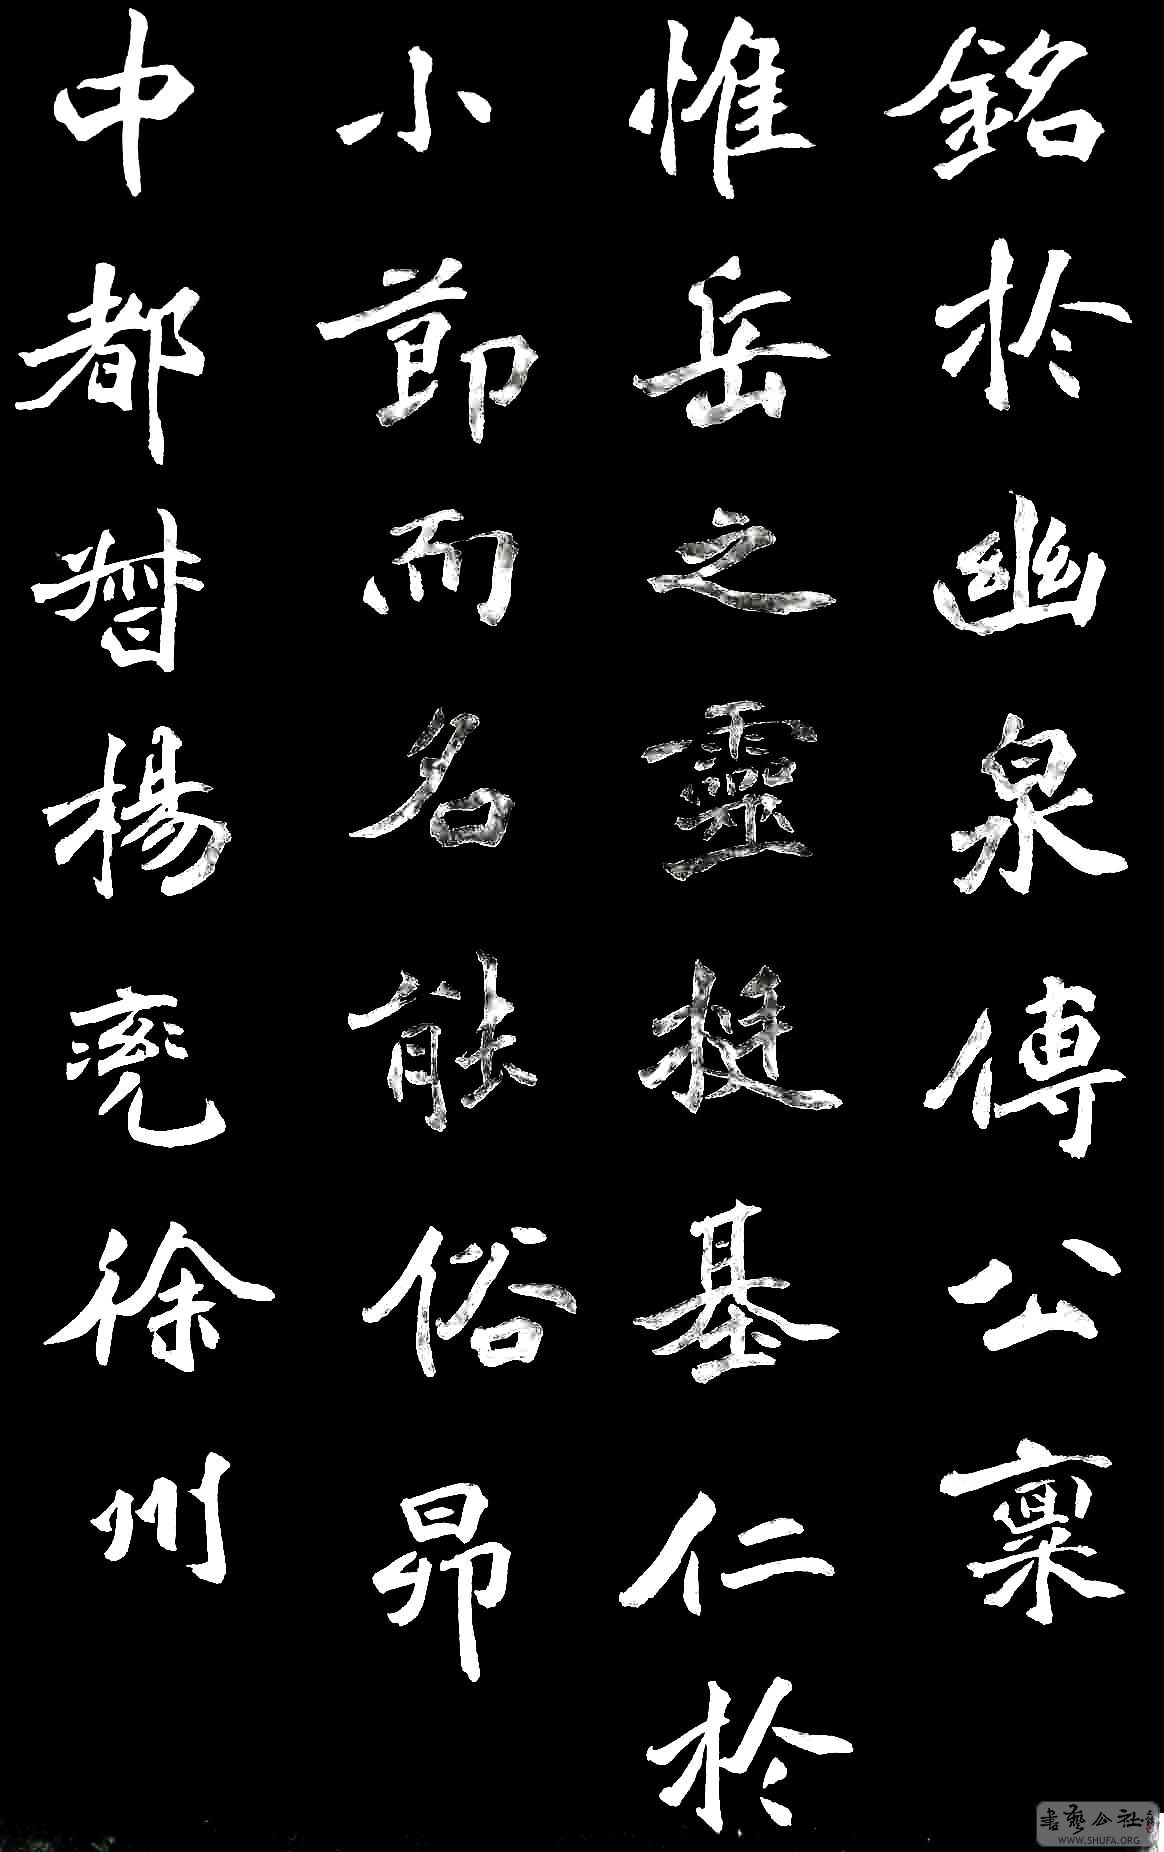 銘於幽泉傅公稟
惟岳之靈挺基仁於
小節而名能俗昴
中都督楊兗徐州
書藝公社
WWW.SHUFA.ORG